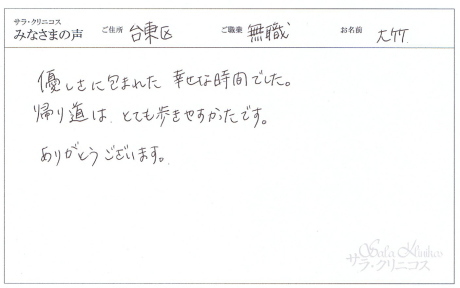 サラ・クリニコス
みなさまの声 ご住所 台東区 ご職業 無職 お名前 大竹
優しさに包まれた 幸せな時間でした。
帰り道は、とても歩きやすかったです。
ありがとうございます。
Sala Klinikos
サラ・クリニコス